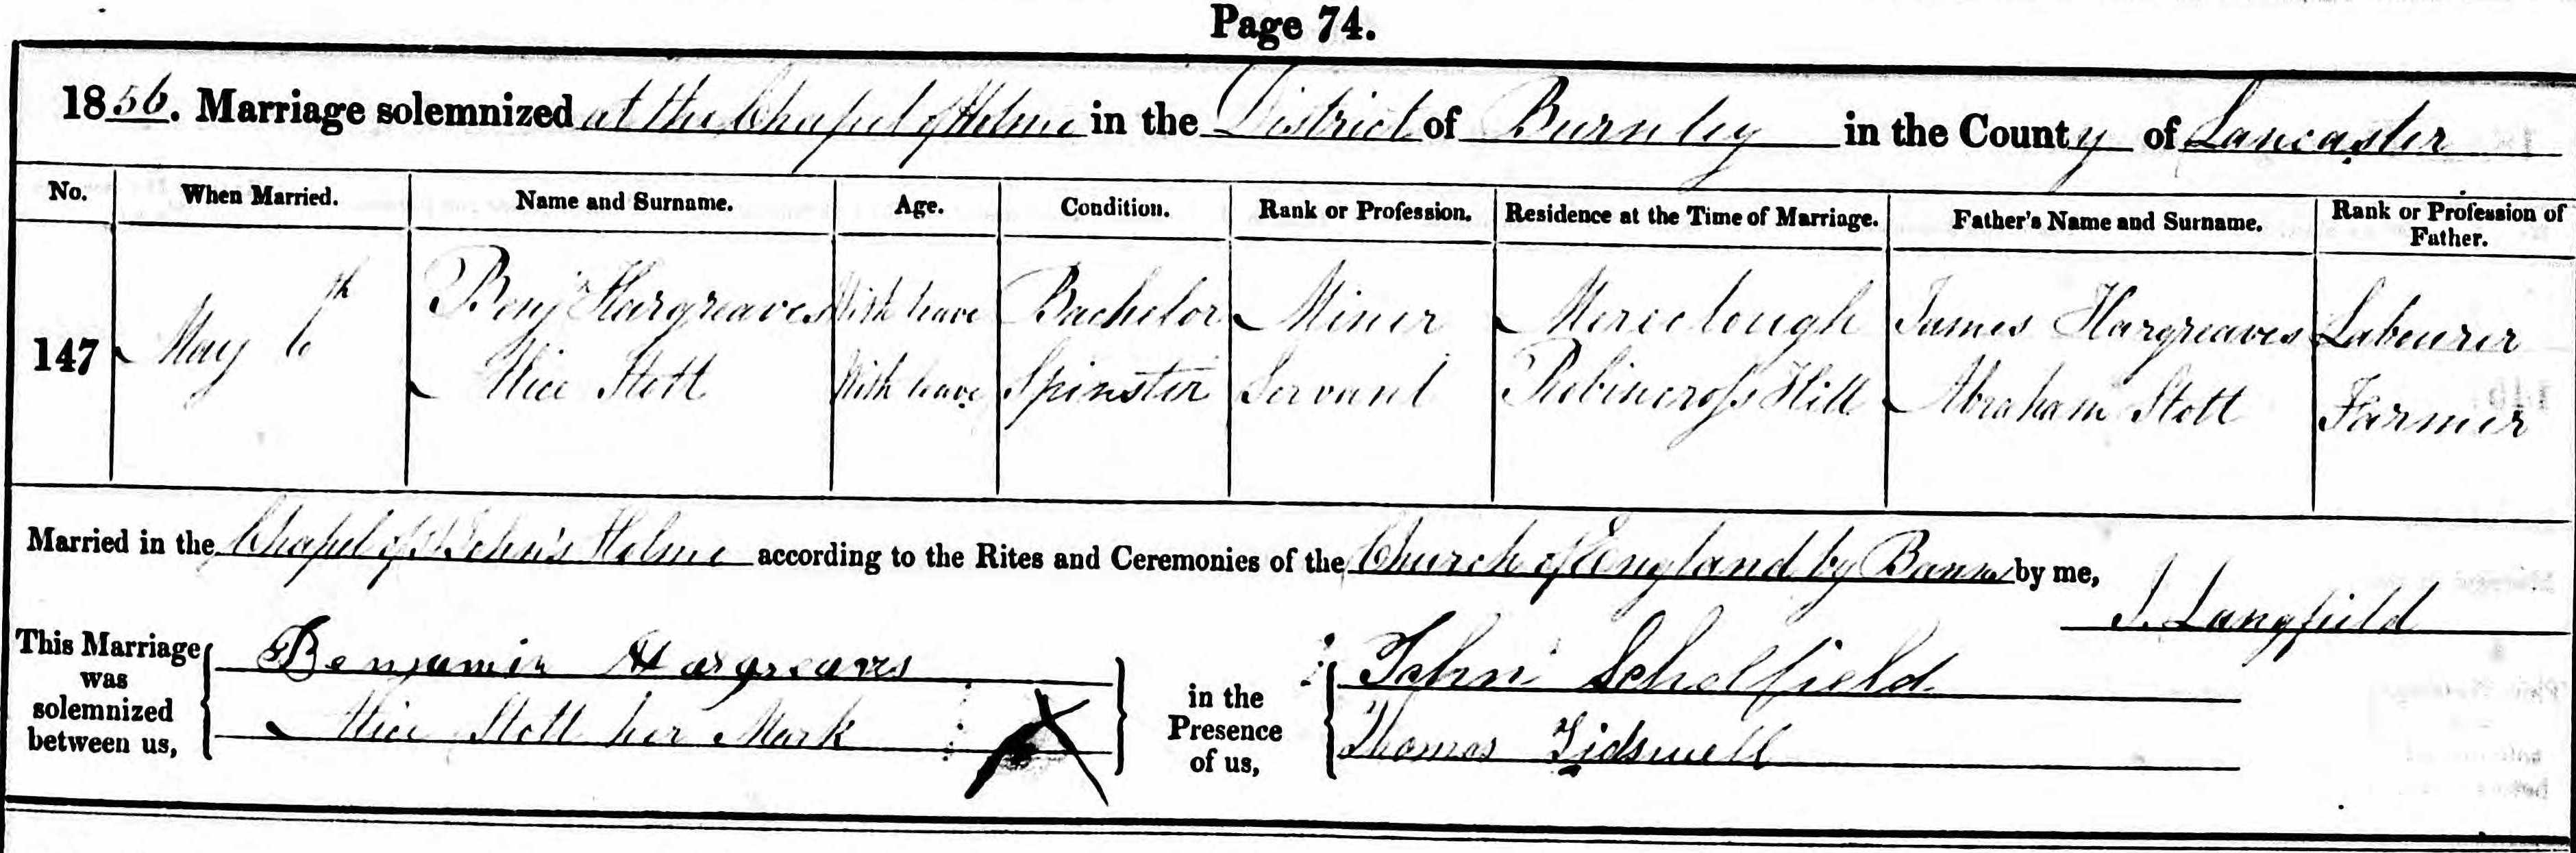 Page 74.
1856. Marriage solemnized at the Chapel of Holme in the District of Burnley in the County of Lancaster
No. When Married. Name and Surname. Age. Condition. Rank or Profession. Residence at the Time of Marriage. Father's Name and Surname. Rank or Profession of Father.
147 May 6th Benjn Hargreaves With leave Bachelor Miner Mereclough James Hargreaves Labourer
Alice Stott With leave Spinster Servant Robincross Hill Abraham Stott Farmer
Married in the Chapel of St John's Holme according to the Rites and Ceremonies of the Church of England by Banns by me,
J. Langfield
This Marriage was solemnized between us, Benjamin Hargreaves in the Presence of us, John Scholfield
Alice Stott her Mark X Thomas Tidswell